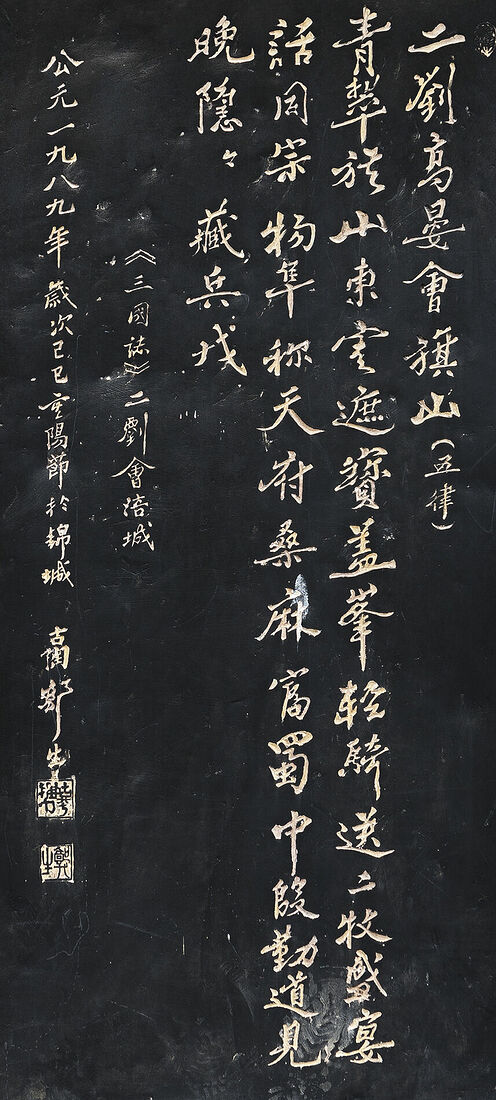 二劉高晏會旗山(五律)
青犂旗山東雲遮寶蓋峯輕騎送二牧盛宴
話同宗物阜称天府桑麻富蜀中殷勤道見
晚隱々藏兵戎
《三國誌》二劉會涪城
公元一九八九年歲次己巳重陽節於錦城